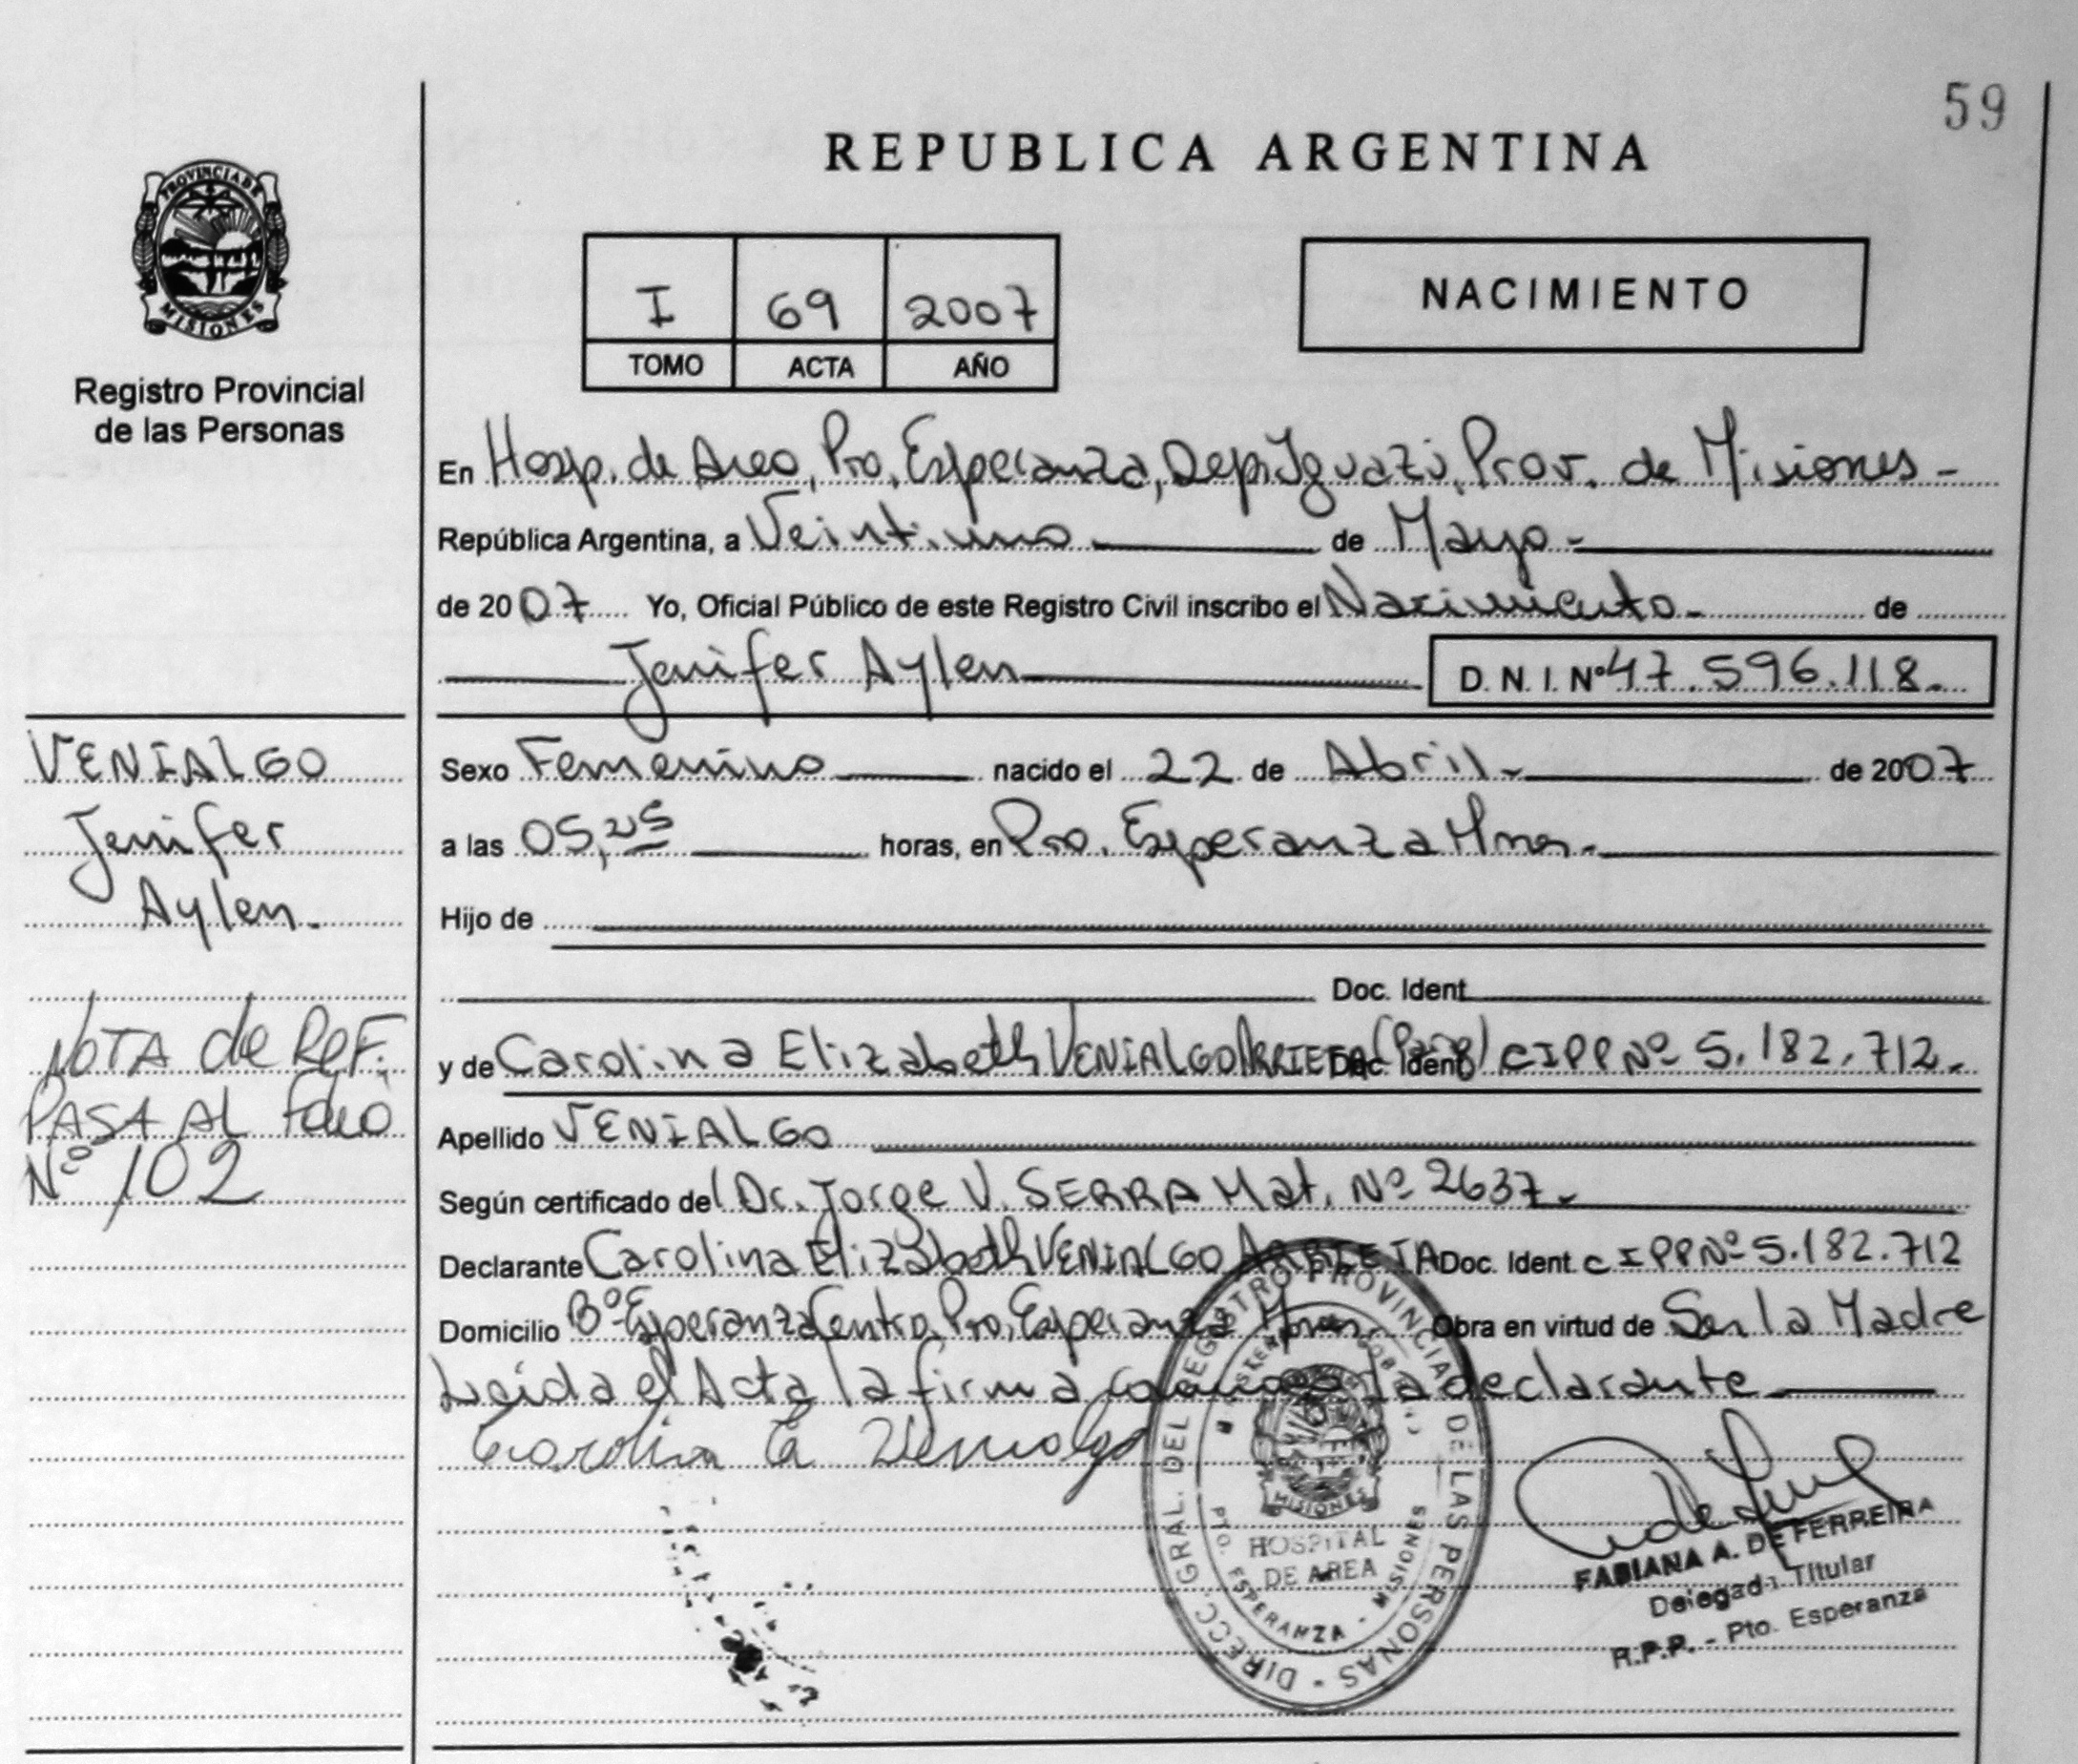 59
REPUBLICA ARGENTINA
PROVINCIA DE
MISIONES
Registro Provincial
de las Personas
I 69 2007
TOMO ACTA AÑO
NACIMIENTO
En Hosp. de Area, Pto. Esperanza, Dep. Iguazú, Prov. de Misiones -
República Argentina, a Veintiuno de Mayo -
de 2007 Yo, Oficial Público de este Registro Civil inscribo el Nacimiento - de
Jenifer Aylen D. N. I. Nº 47.596.118.
VENIALGO
Jenifer
Aylen.
NOTA de REF.
PASA AL Folio
Nº 102
Sexo Femenino nacido el 22 de Abril - de 2007
a las 05, horas, en Pto. Esperanza Mnes.
Hijo de
Doc. Ident
y de Carolina Elizabeth VENIALGO ARRIETA (Parg) Doc. Ident CIPP Nº 5.182.712.
Apellido VENIALGO
Según certificado del Dr. Jorge V. SERRA Mat. Nº 2637.
Declarante Carolina Elizabeth VENIALGO ARRIETA Doc. Ident CIPP Nº 5.182.712
Domicilio Bº Esperanza Centro, Pto. Esperanza Mnes. Obra en virtud de Ser la Madre
Leida el Acta la firma conmigo la declarante
Carolina E Venialgo
DIRECC. GRAL. DEL REGISTRO PROVINCIAL DE LAS PERSONAS -
MISIONES
HOSPITAL
DE AREA
PTO. ESPERANZA - MISIONES
FABIANA A. DE FERREIRA
Delegada Titular
R.P.P. - Pto. Esperanza